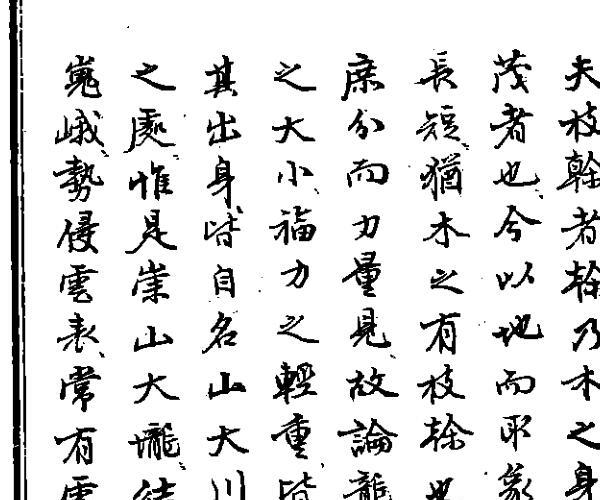 夫枝幹者幹乃木之身
茂者也今以地而取象
長短猶木之有枝幹也
庶分而力量見故論龍
之大小福力之輕重皆
其出身皆自名山大川
之處惟是崇山大壠結
嵬峨勢侵雲表常有雲